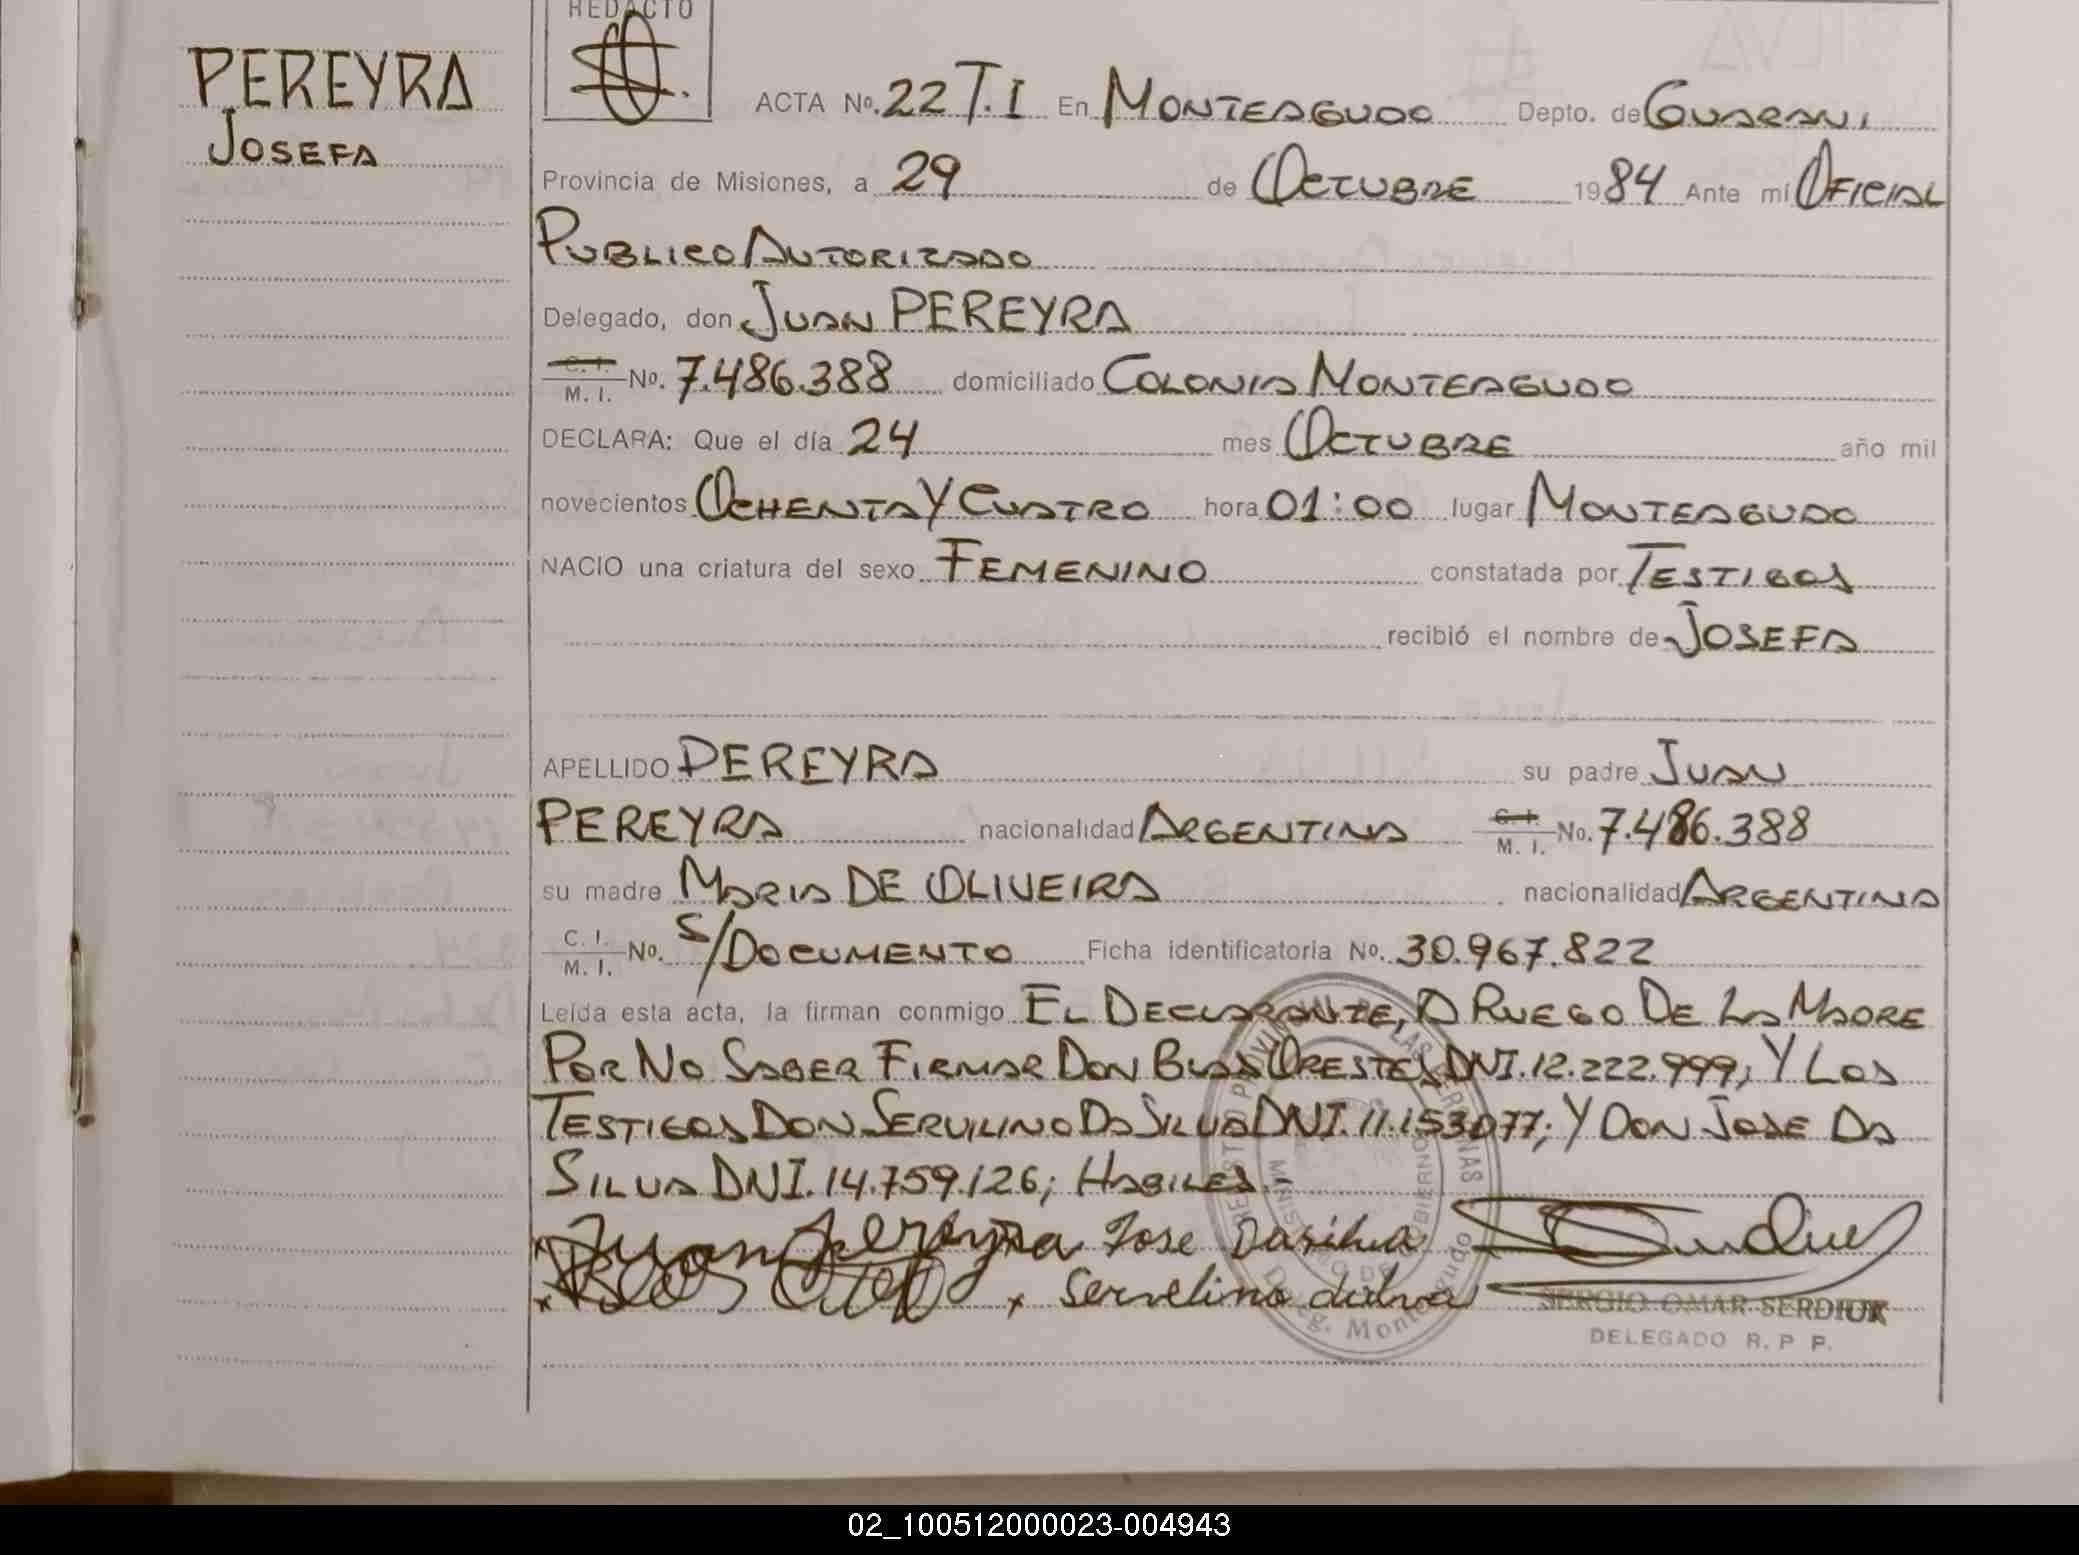 PEREYRA
JOSEFA
REDACTO
ACTA No. 22 T.I En MONTEAGUDO Depto. de GUARANI
Provincia de Misiones, a 29 de OCTUBRE 1984 Ante mí OFICIAL
PUBLICO AUTORIZADO
Delegado, don JUAN PEREYRA
C. I. / M. I. No. 7.486.388 domiciliado COLONIA MONTEAGUDO
DECLARA: Que el día 24 mes OCTUBRE año mil
novecientos OCHENTA Y CUATRO hora 01:00 lugar MONTEAGUDO
NACIO una criatura del sexo FEMENINO constatada por TESTIGOS
recibió el nombre de JOSEFA
APELLIDO PEREYRA su padre JUAN
PEREYRA nacionalidad ARGENTINA C. I. / M. I. No. 7.486.388
su madre MARIA DE OLIVEIRA nacionalidad ARGENTINA
C. I. / M. I. No. S/DOCUMENTO Ficha identificatoria No. 30.967.822
Leída esta acta, la firman conmigo EL DECLARANTE, A RUEGO DE LA MADRE
POR NO SABER FIRMAR DON BLAS ORESTES DNI. 12.222.999; Y LOS
TESTIGOS DON SERVILINO DA SILVA DNI. 11.153077; Y DON JOSE DA
SILVA DNI. 14.759.126; HABILES.
Juan Pereyra Jose Dasilva
x x Servelino dasilva
SERGIO OMAR SERDIUK
DELEGADO R. P P.
Deleg. Monteagudo
02_100512000023-004943